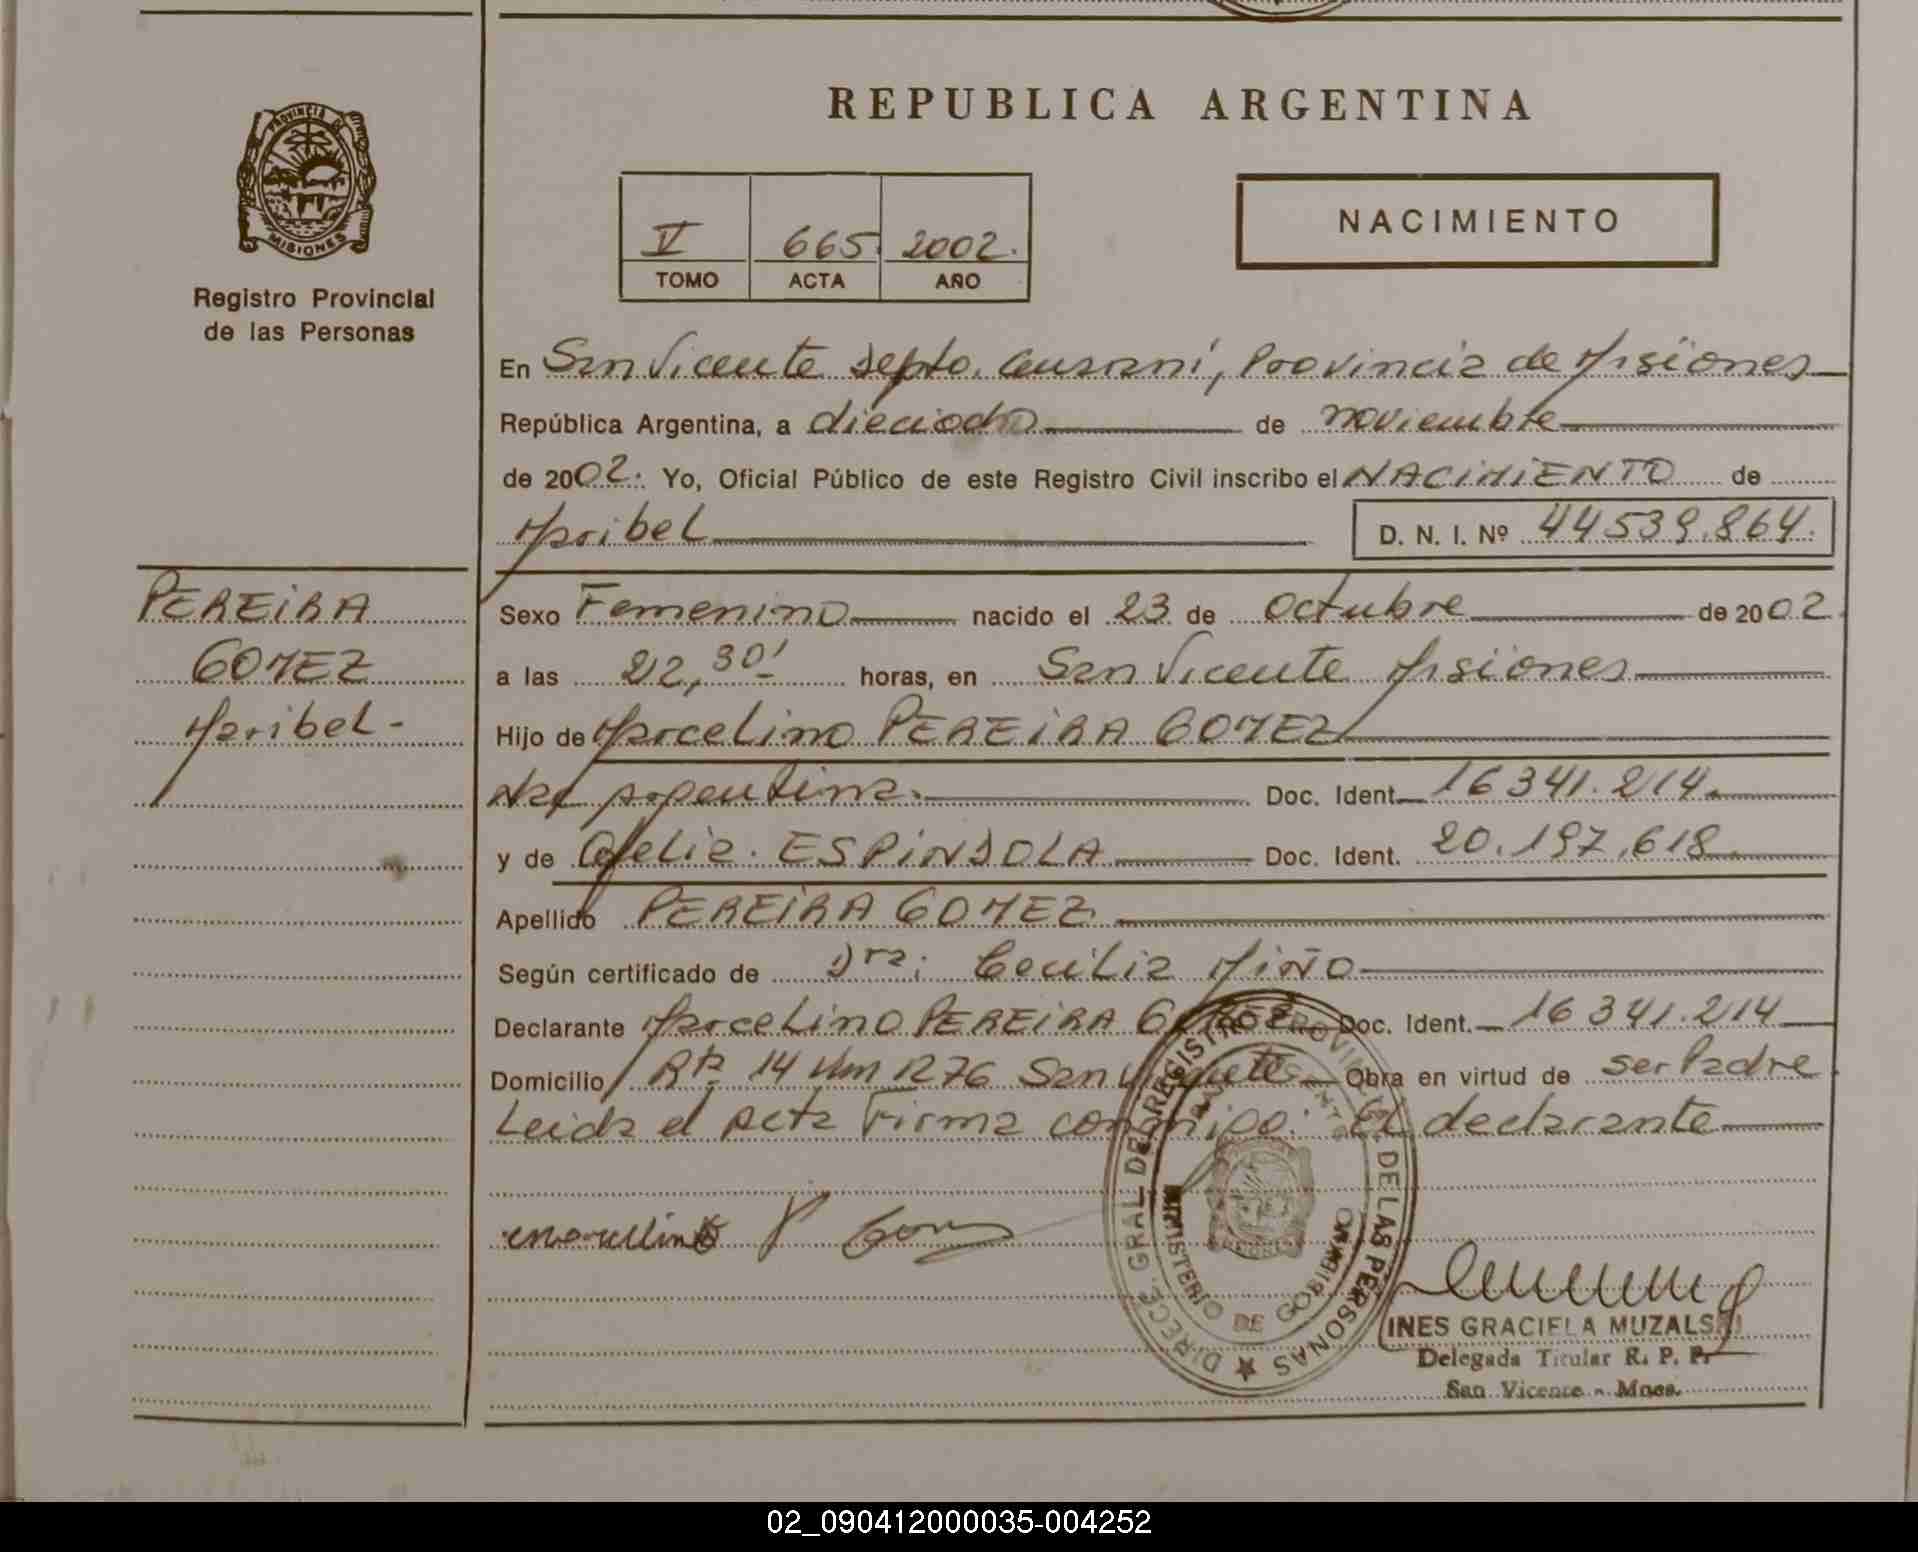 REPUBLICA ARGENTINA
PROVINCIA DE
MISIONES
Registro Provincial
de las Personas
V 665. 2002.
TOMO ACTA AÑO
NACIMIENTO
En San Vicente Depto. Guaraní, Provincia de Misiones
República Argentina, a dieciocho de noviembre
de 2002. Yo, Oficial Público de este Registro Civil inscribo el NACIMIENTO de
Maribel D. N. I. Nº 44539.864.
PEREIRA
GOMEZ
Maribel-
Sexo Femenino nacido el 23 de Octubre de 2002
a las 22,30' horas, en San Vicente Misiones
Hijo de Marcelino PEREIRA GOMEZ
Nac Argentina. Doc. Ident. 16341.214.
y de Ofelia. ESPINDOLA Doc. Ident. 20.197.618
Apellido PEREIRA GOMEZ
Según certificado de Dra: Cecilia Miño
Declarante Marcelino PEREIRA GOMEZ Doc. Ident. 16341.214
Domicilio Rta 14 Km 1276 San Vicente Obra en virtud de ser Padre
Leida el Acta Firma conmigo: El declarante
DIRECC. GRAL DE REGISTRO PROVINCIAL DE LAS PERSONAS
MINISTERIO DE GOBIERNO
MISIONES
INES GRACIELA MUZALSKI
Delegada Titular R. P. P.
San Vicente - Mnes.
02_090412000035-004252